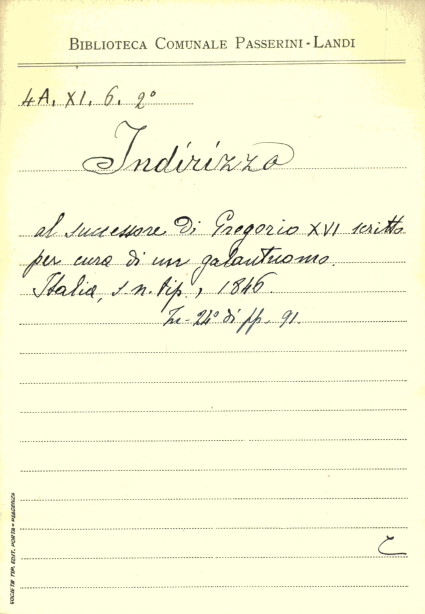 BIBLIOTECA COMUNALE PASSERINI-LANDI
4A. XI. 6. 2º
Indirizzo
al successore di Gregorio XVI scritto
per cura di un galantuomo.
Italia, s. n. tip., 1846.
In-24º di pp. 91.
SOCIETÀ TIP. EDIT. PORTA - PIACENZA